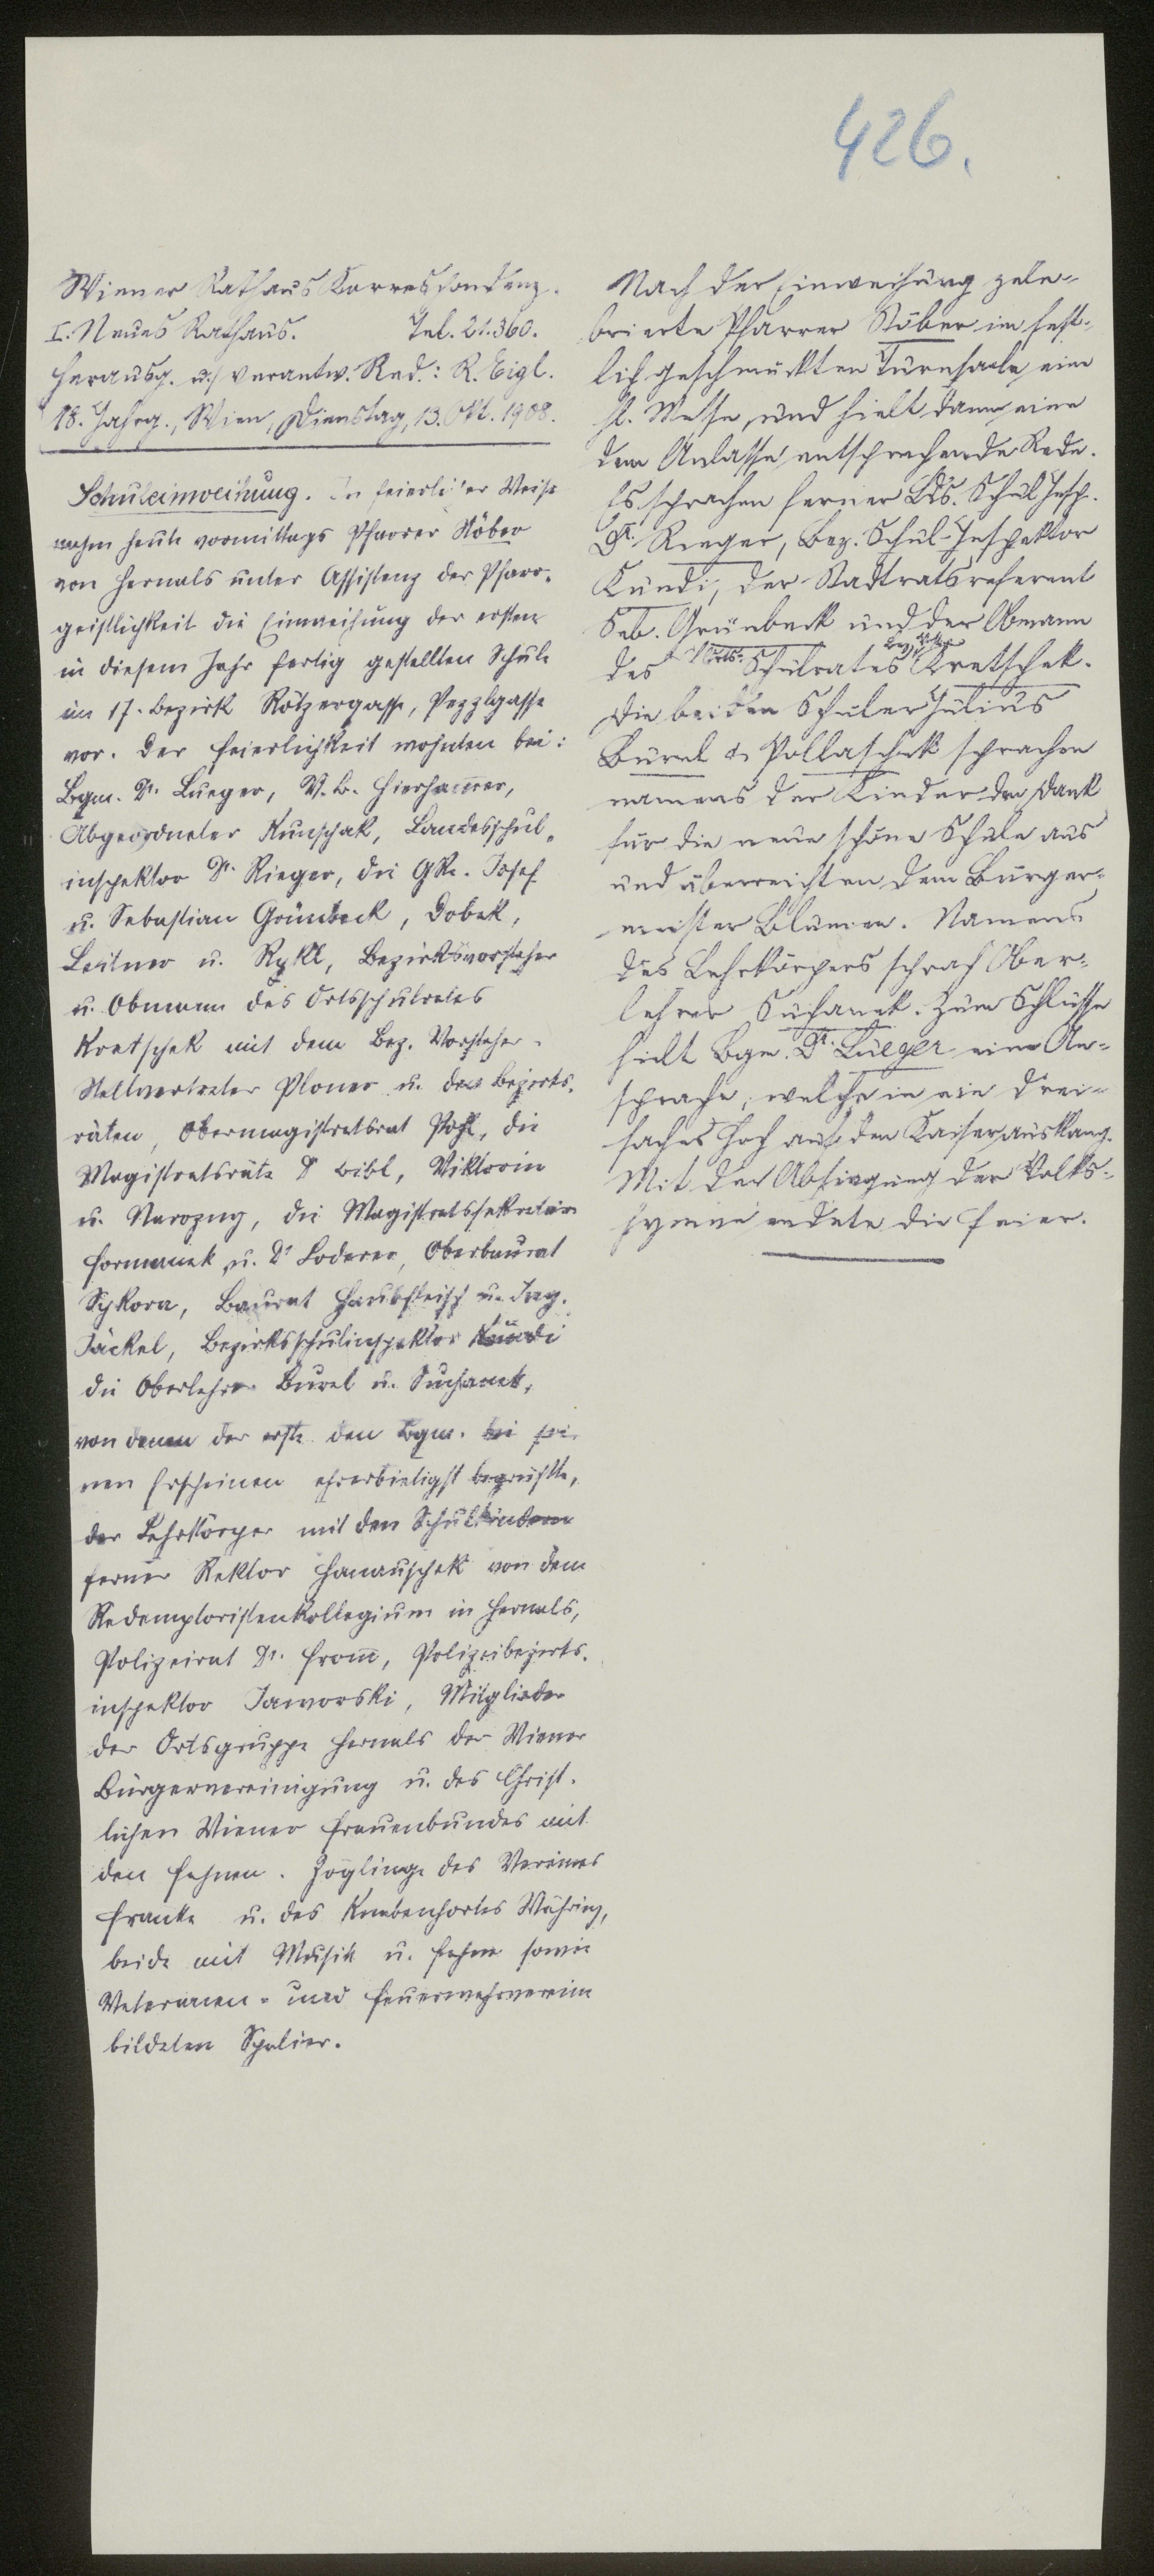 426.
Wiener Rathaus Korrespondenz.
I. Neues Rathaus. Tel. 21.360.
Herausg. u. verantw. Red.: R. Eigl.
18. Jahrg., Wien, Dienstag, 13. Okt. 1908.
Schuleinweihung. In feierlicher Weise
nahm heute vormittags Pfarrer Stöber
von Hernals unter Assistenz der Pfarr-
geistlichkeit die Einweihung der ersten
in diesem Jahr fertig gestellten Schule
im 17. Bezirk Rötzergasse, Pezzlgasse
vor. Der Feierlichkeit wohnten bei:
Bgm. Dr. Lueger, V.B. Hierhammer,
Abgeordneter Kunschak, Landesschul-
inspektor Dr. Rieger, die GRe. Josef
u. Sebastian Grünbeck, Dobek,
Leitner u. Rykl, Bezirksvorsteher
u. Obmann des Ortsschulrates
Kretschek mit dem Bez. Vorsteher-
Stellvertreter Ploner u. den Bezirks-
räten, Obermagistratsrat Pohl, die
Magistratsräte Dr. Bibl, Viktorin
u. Nawozny, die Magistratssekretäre
Formanek u. Dr. Loderer, Oberbaurat
Sykora, Baurat Haubfleisch u. Ing.
Jäckel, Bezirksschulinspektor Kundi
die Oberlehrer Burel u. Suchanek,
von denen der erste den Bgm. bei sei-
nen Erscheinen ehrerbietigst begrüßte,
der Lehrkörper mit den Schulkindern
ferner Rektor Hanauschek von dem
Redemptoristenkollegium in Hernals,
Polizeirat Dr. Fromm, Polizeibezirks-
inspektor Jaworski, Mitglieder
der Ortsgruppe Hernals der Wiener
Bürgervereinigung u. des Christ-
lichen Wiener Frauenbundes mit
den Fahnen. Zöglinge des Vereines
Franke u. des Knabenhortes Währing,
beide mit Musik u. Fahne sowie
Veteranen- und Feuerwehrverein
bildeten Spalier.
Nach der Einweihung zele-
brierte Pfarrer Stöber im fest-
lich geschmückten Turnsaale eine
hl. Messe und hielt dann eine
dem Anlasse entsprechende Rede.
Es sprachen ferner Lds. Schul Insp.
Dr. Rieger, Bez. Schul-Inspektor
Kundi, der Stadtratsreferent
Seb. Grünbeck und der Obmann
des Orts-Schulrates Kretschek.
Die beiden Schüler Julius
Burel & Pollaschek sprachen
namens der Kinder den Dank
für die neue schöne Schule aus
und überreichten dem Bürger-
meister Blumen. Namens
des Lehrkörpers sprach Ober-
lehrer Suchanek. Zum Schlusse
hielt Bgm. Dr. Lueger eine An-
sprache, welche in ein drei-
faches Hoch auf den Kaiser ausklang.
Mit der Absingung der Volks-
hymne endete die Feier.